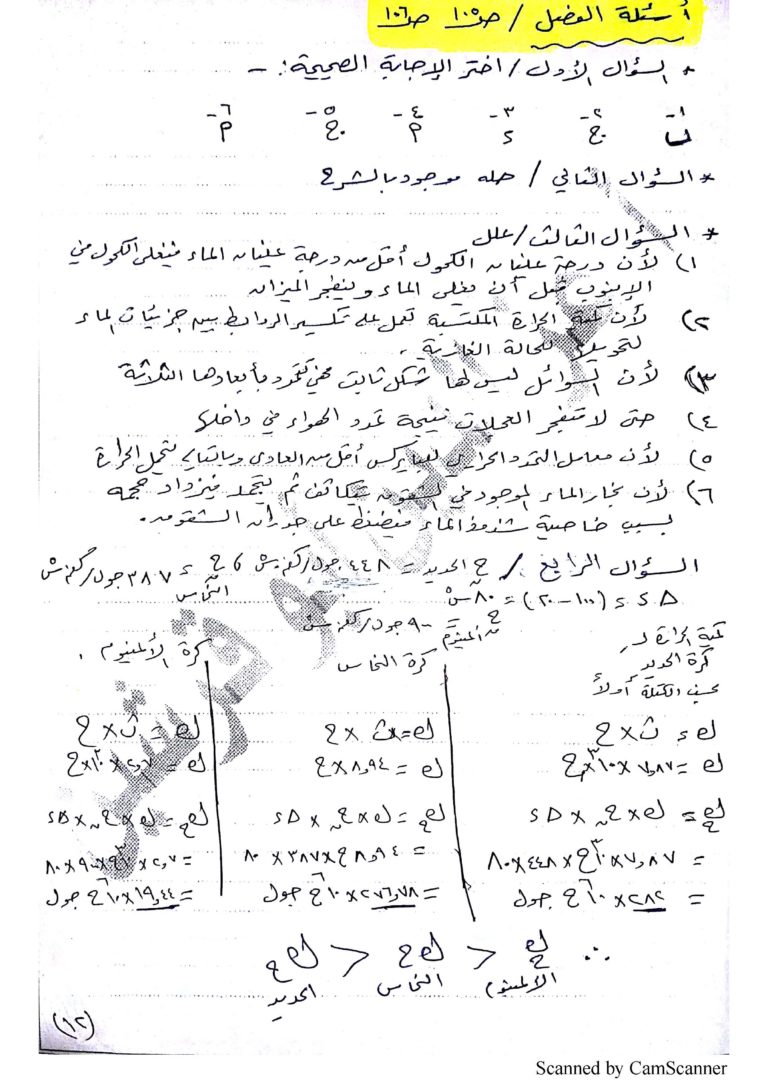 أسئلة الفصل / ص ١٠٥ ص ١٠٦
* السؤال الأول / اختر الإجابة الصحيحة : -
١- ٢- ٣- ٤- ٥- ٦-
ب ج د م ج م
* السؤال الثاني / حله موجود بالشرح
* السؤال الثالث / علل
١) لأن درجة غليان الكحول أقل من درجة غليان الماء فيغلي الكحول في
الإنبوب قبل أن يغلي الماء وينفجر الميزان
٢) لأن كمية الحرارة المكتسبة تعمل على تكسير الروابط بين جزيئات الماء
لتحويلها للحالة الغازية .
٣) لأن السوائل ليس لها شكل ثابت فهي تتمدد بأبعادها الثلاثة
٤) حتى لا تنفجر العجلات نتيجة تمدد الهواء في داخلها
٥) لأن معامل التمدد الحراري للبايركس أقل من العادي وبالتالي يتحمل الحرارة
٦) لأن بخار الماء الموجود في الشقوق يتكاثف ثم يتجمد فيزداد حجمه
بسبب خاصية شذوذ الماء فيضغط على جدران الشقوق .
السؤال الرابع / ح الحديد = ٤٤٨ جول/كغم.س ، ح النحاس = ٣٨٧ جول/كغم.س
Δ د = (١٠٠-٢٠) = ٨٠ س ح ألمنيوم = ٩٠٠ جول/كغم.س
كمية الحرارة لـ
كرة الحديد
نحسب الكتلة أولاً
ك = ث × ح
ك = ٧,٨٧ × ١٠³ × ح
كح = ك × حن × Δ د
= ٧,٨٧ × ١٠³ ح × ٤٤٨ × ٨٠
= ٢٨٢ × ١٠⁶ ح جول
كرة النحاس
ك = ث × ح
ك = ٨,٩٤ × ح
كح = ك × حن × Δ د
= ٨,٩٤ ح × ٣٨٧ × ٨٠
= ٢٧٦,٧٨ × ١٠⁶ ح جول
كرة الألمنيوم .
ك = ث × ح
ك = ٢,٧ × ١٠³ × ح
كح = ك × حن × Δ د
= ٢,٧ × ١٠³ ح × ٩٠٠ × ٨٠
= ١٩,٤٤ × ١٠⁶ ح جول
∴ كح الألمنيوم < كح النحاس < كح الحديد
(١٢)
Scanned by CamScanner